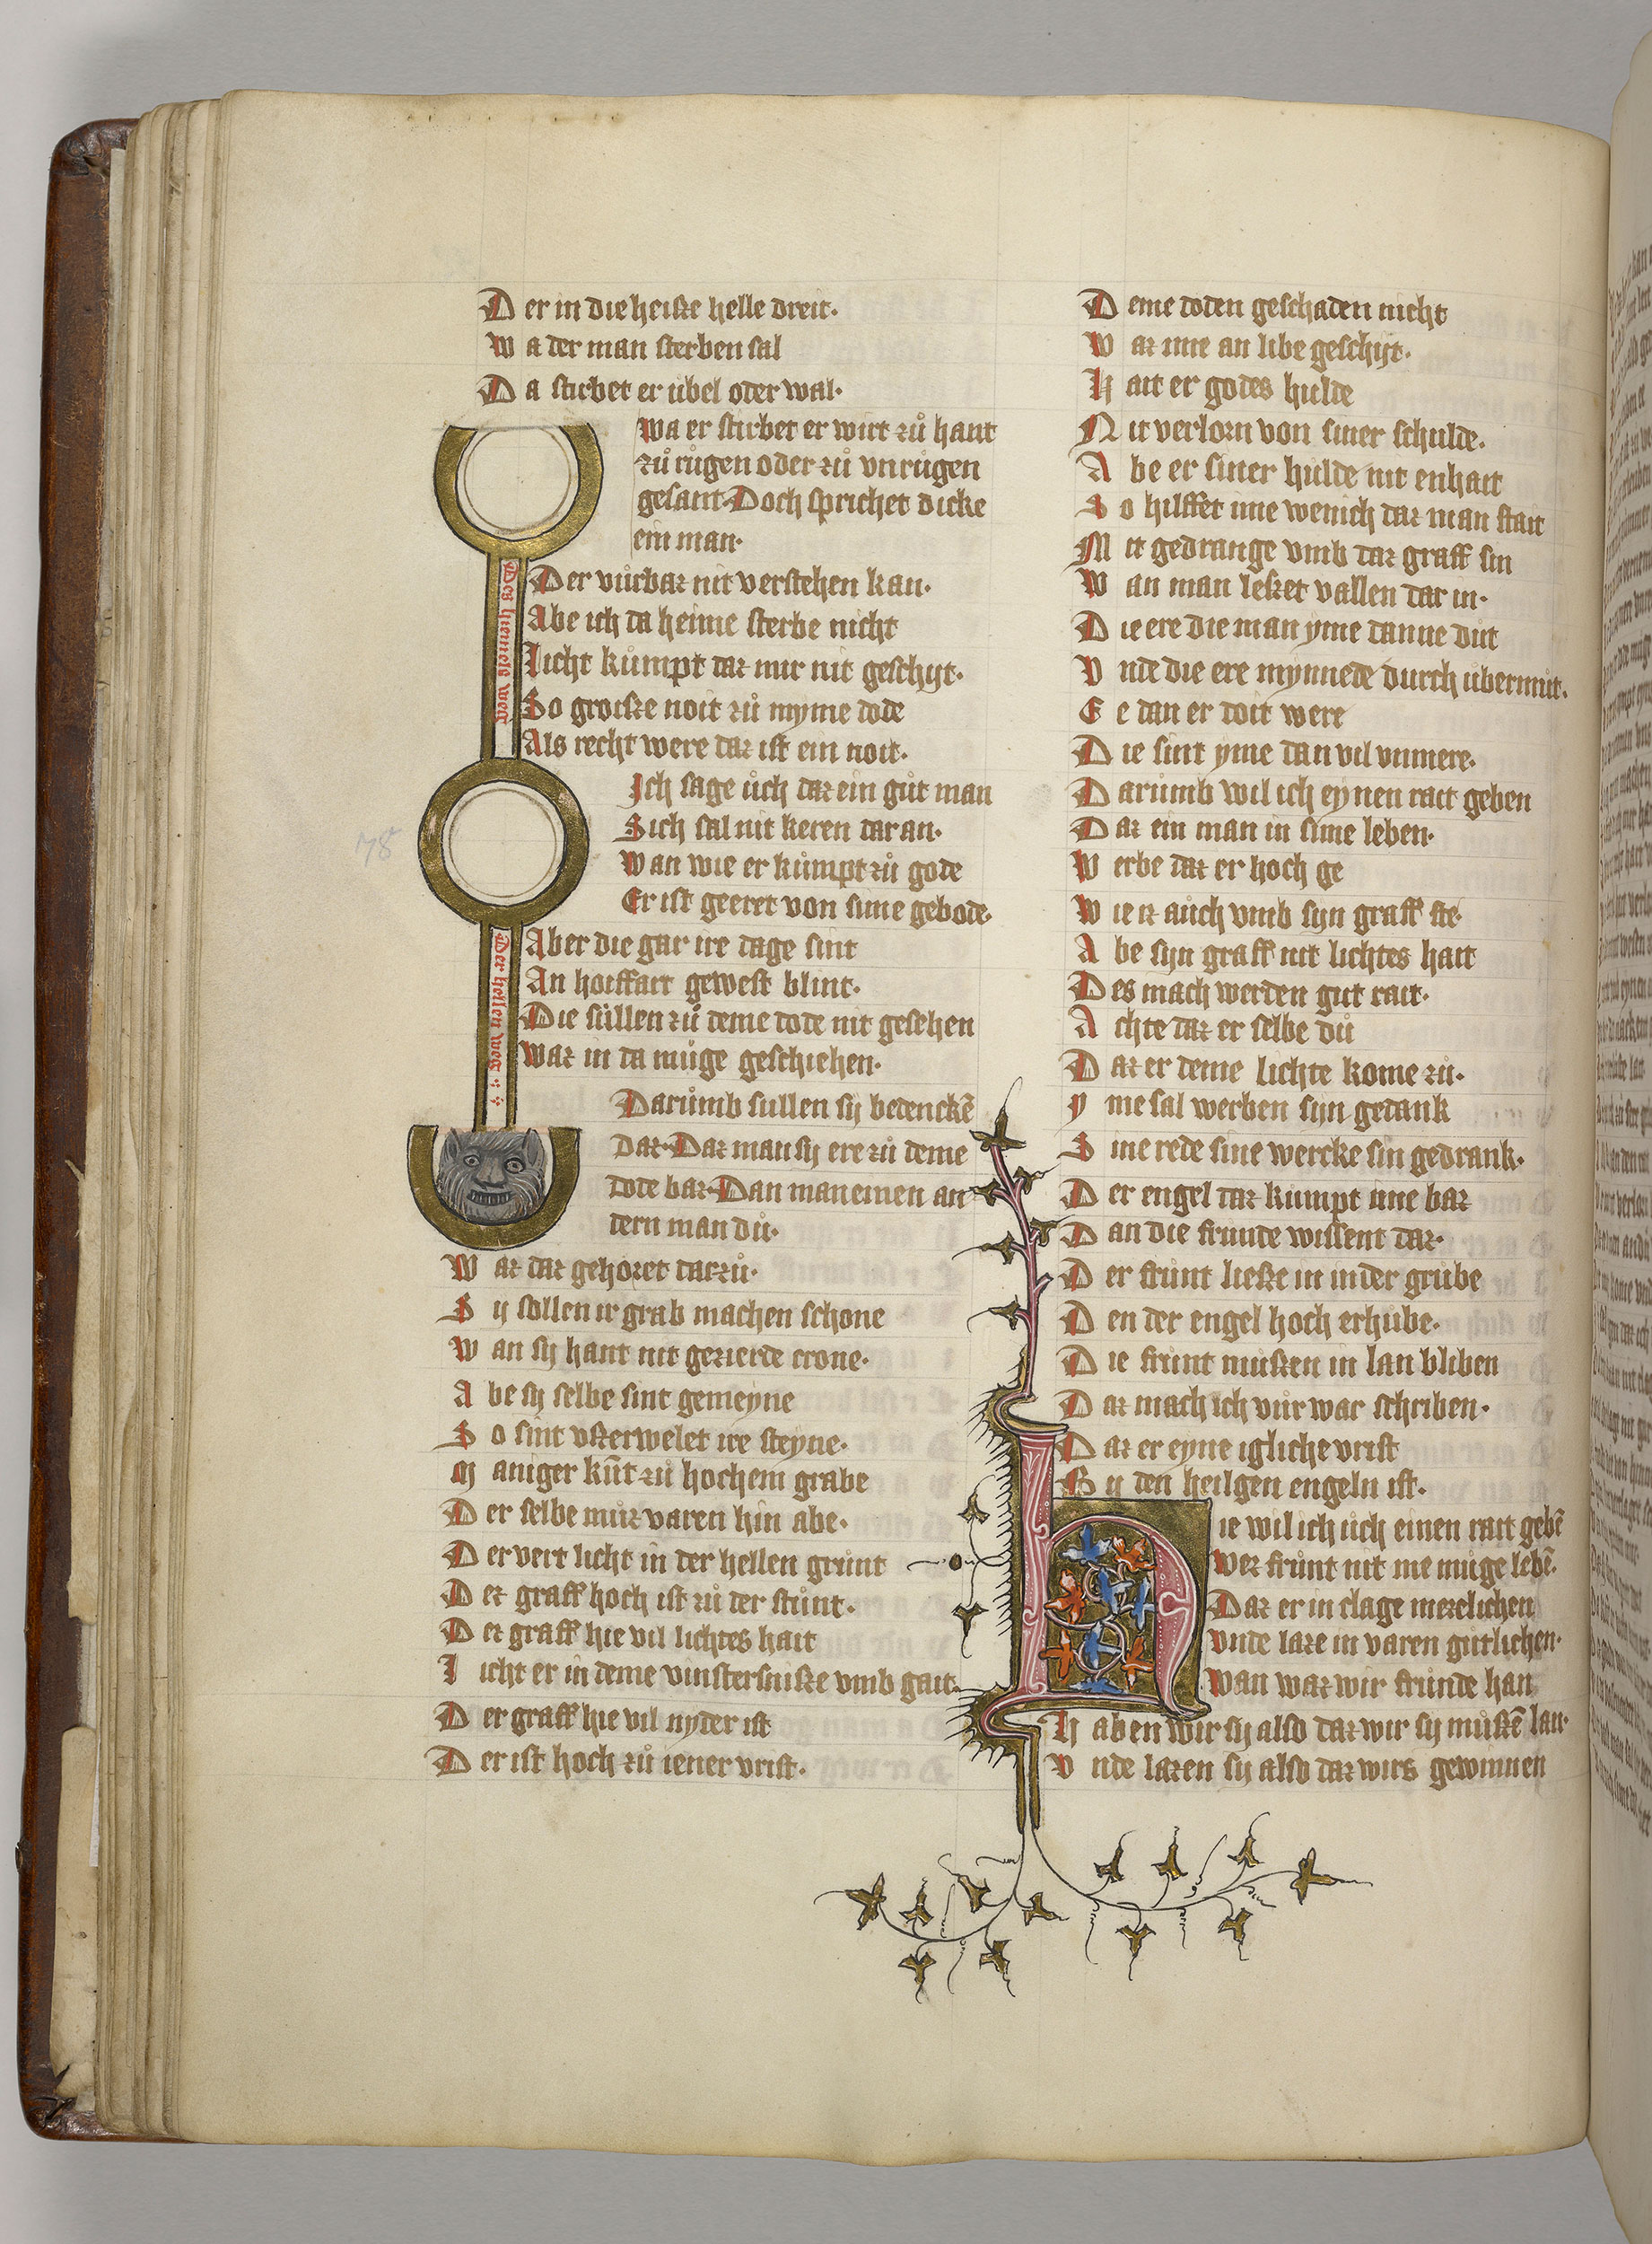 Der in die heiſze helle dreit·
Wa der man ſterben ſal
Da ſtirbet er ubel oder wal·
Wa er ſtirbet er wirt zů hant
zů růgen oder zů vnrůgen
geſant· Doch ſprichet dicke
ein man·
Der vůrbaz nit verſtehen kan·
Abe ich da heime ſterbe nicht
Licht kůmpt daz mir nit geſchijt·
So groiſze noit zů myme dode
Als recht were daz iſt ein noit·
Ich ſage ůch daz ein gůt man
Sich ſal nit keren dar an·
Wan wie er kůmpt zů gode
Er iſt geeret von ſime gebode·
Aber die gar ire dage ſint
An hoiffart geweſt blint·
Die ſůllen zů deme dode nit geſehen
Waz in da můge geſchiehen·
Darůmb ſullen ſij bedenckē
daz· Daz man ſij ere zů deme
dode baz· Dan man einen an
dern man dů·
Waz daz gehoret dar zů·
Sij ſollen ir grab machen ſchone
Wan ſij hant nit gezierde crone·
Abe ſij ſelbe ſint gemeyne
So ſint vſzerwelet ire ſteyne·
Maniger kůt zů hochem grabe
Der ſelbe můz varen hin abe·
Der vert licht in der hellen grůnt
Dez graff hoch iſt zů der ſtůnt·
Dez graff hie vil lichtes hait
Licht er in deme vinſterniſze vmb gait·
Dez graff hie vil nyder iſt
Der iſt hoch zů iener vriſt·
Des hiemels weg
Der hellen weg
78
Deme doden geſchaden nicht
Waz ime an libe geſchijt·
Hait er godes hulde
Nit verlorn von ſiner ſchulde·
Abe er ſiner hulde nit enhait
So hilffet ime wenich daz man ſtait
Mit gedrange vmb daz graff ſin
Wan man leſzet vallen dar in·
Die ere die man yme danne důt
Vnde die ere mynnede durch ůbermůt·
Ee dan er doit were
Die ſint yme dan vil vnmere·
Darůmb wil ich eynen rait geben
Daz ein man in ſime leben·
Werbe daz er hoch ge
Wie iz aůch vmb ſyn graff ſte·
Abe ſijn graff nit lichtes hait
Des mach werden gůt rait·
Achte daz er ſelbe dů
Daz er deme lichte kome zů·
Yme ſal werben ſijn gedank
Sine rede ſine wercke ſin gedrank·
Der engel daz kůmpt ime baz
Dan die frunde wiſſent daz·
Der frůnt lieſze in in der grůbe
Den der engel hoch erhube·
Die frůnt můſzen in lan bliben
Daz mach ich vůr war ſchriben·
Daz er eyne igliche vriſt
Bij den heilgen engeln iſt·
Hie wil ich ůch einen rait gebē
Wez frůnt nit me můge lebē·
Daz er in clage mezlichen
vnde laze in varen gůtlichen·
Wan waz wir frůnde han
Haben wir ſij alſo daz wir ſij můſzē lan·
Vnde lazen ſij alſo daz wirs gewinnen